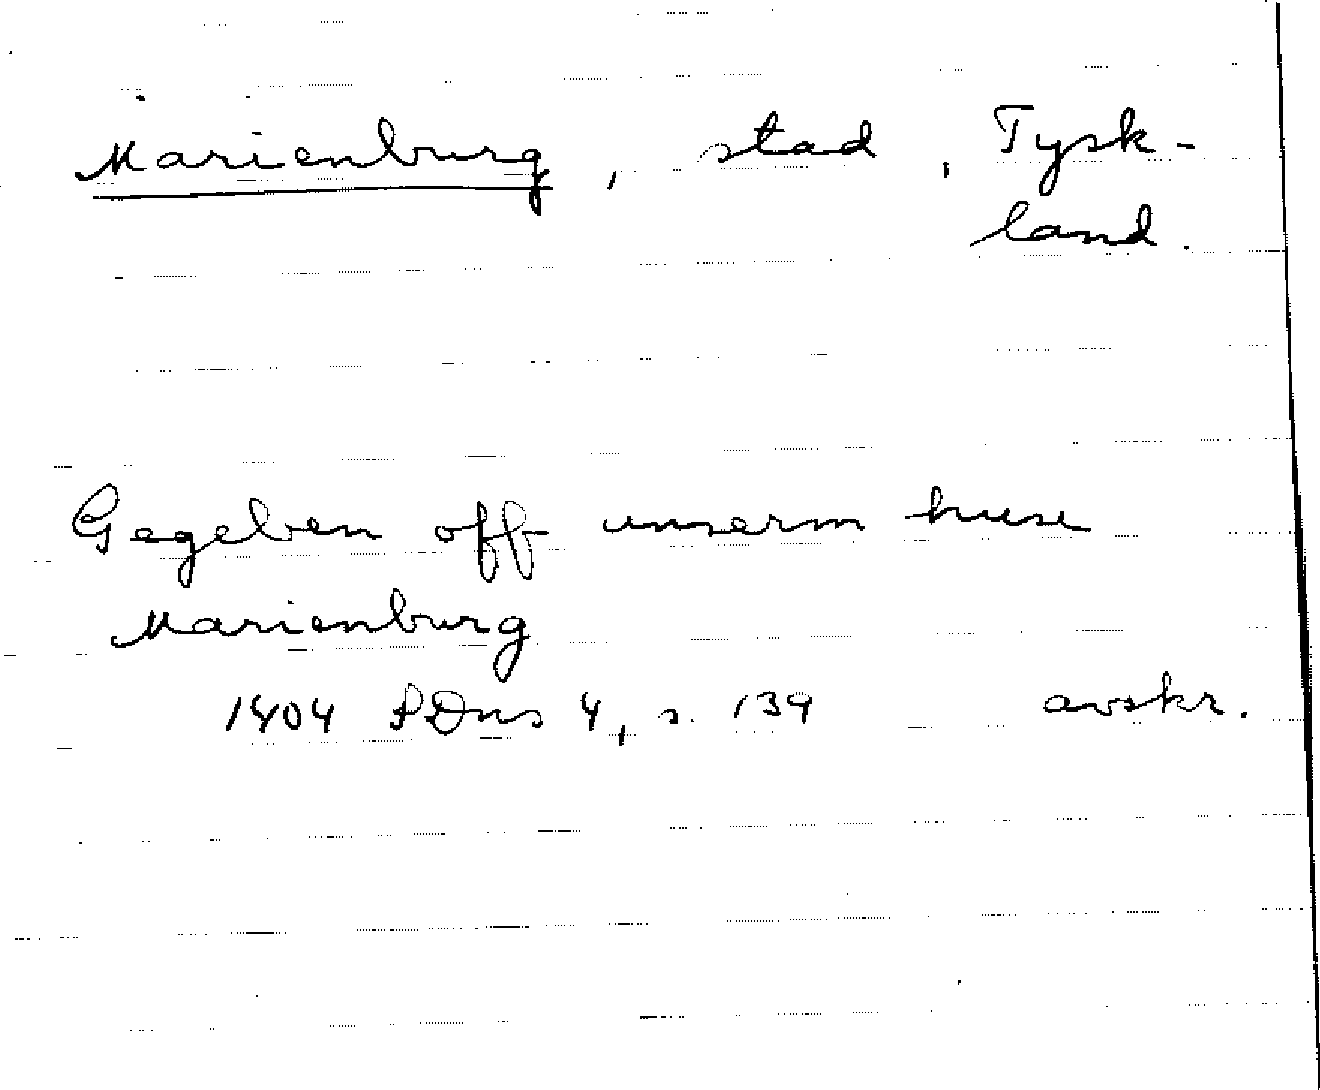 Marienburg, stad, Tysk-
land.
Gegeben off unserm huse
Marienburg
1404 SDns 4, s. 139 avskr.